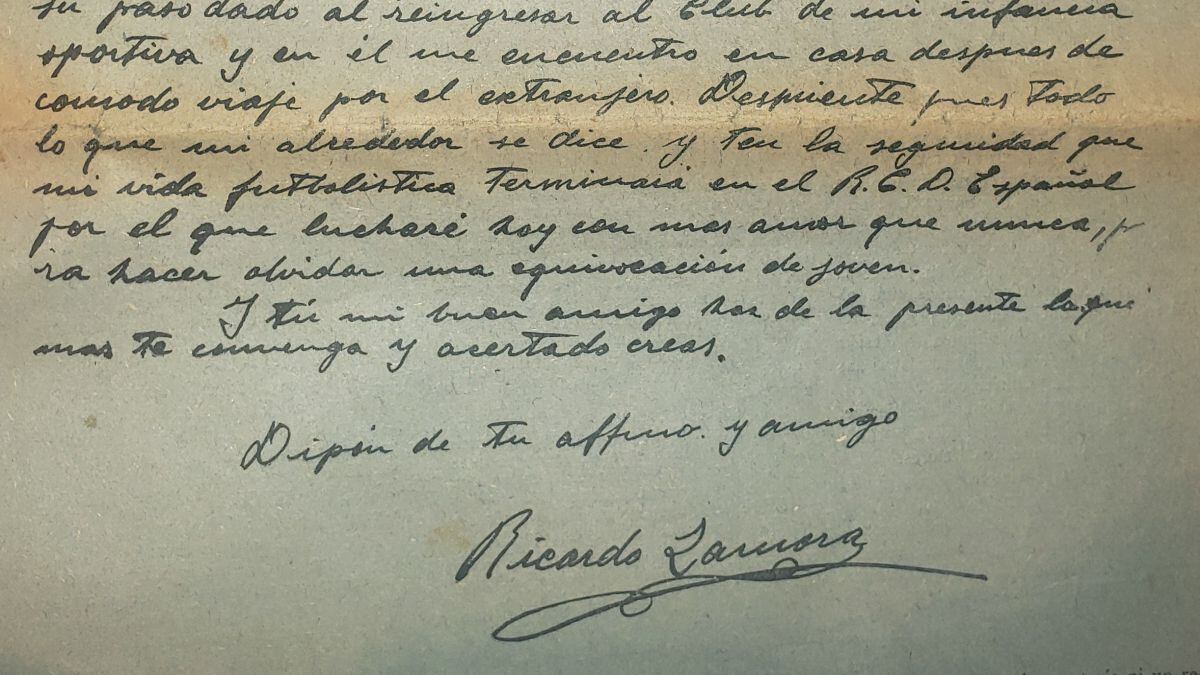 su paso dado al reingresar al Club de mi infancia
sportiva y en él me encuentro en casa despues de
comodo viaje por el extranjero. Desmiente pues todo
lo que mi alrededor se dice y ten la seguridad que
mi vida futbolistica terminará en el R.E.D. Español
por el que lucharé hoy con mas amor que nunca, p
ra hacer olvidar una equivocación de joven.
Y tú mi buen amigo haz de la presente lo que
mas te convenga y acertado creas.
Dipón de tu affmo. y amigo
Ricardo Zamora